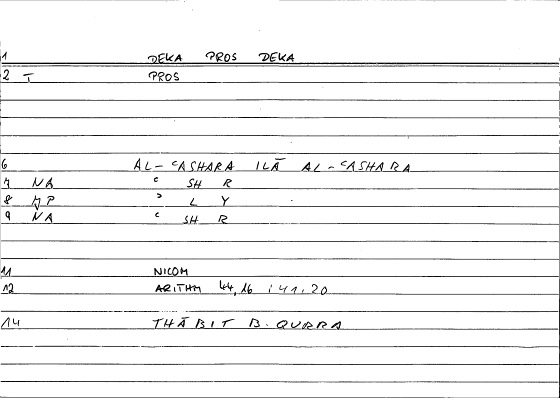 1 DEKA PROS DEKA
2 T PROS
6 AL-ʿASHARA ILĀ AL-ʿASHARA
7 NA ʿ SH R
8 MP ʾ L Y
9 NA ʿ SH R
11 NICOM
12 ARITHM 44,16 : 41,20
14 THĀBIT B. QURRA